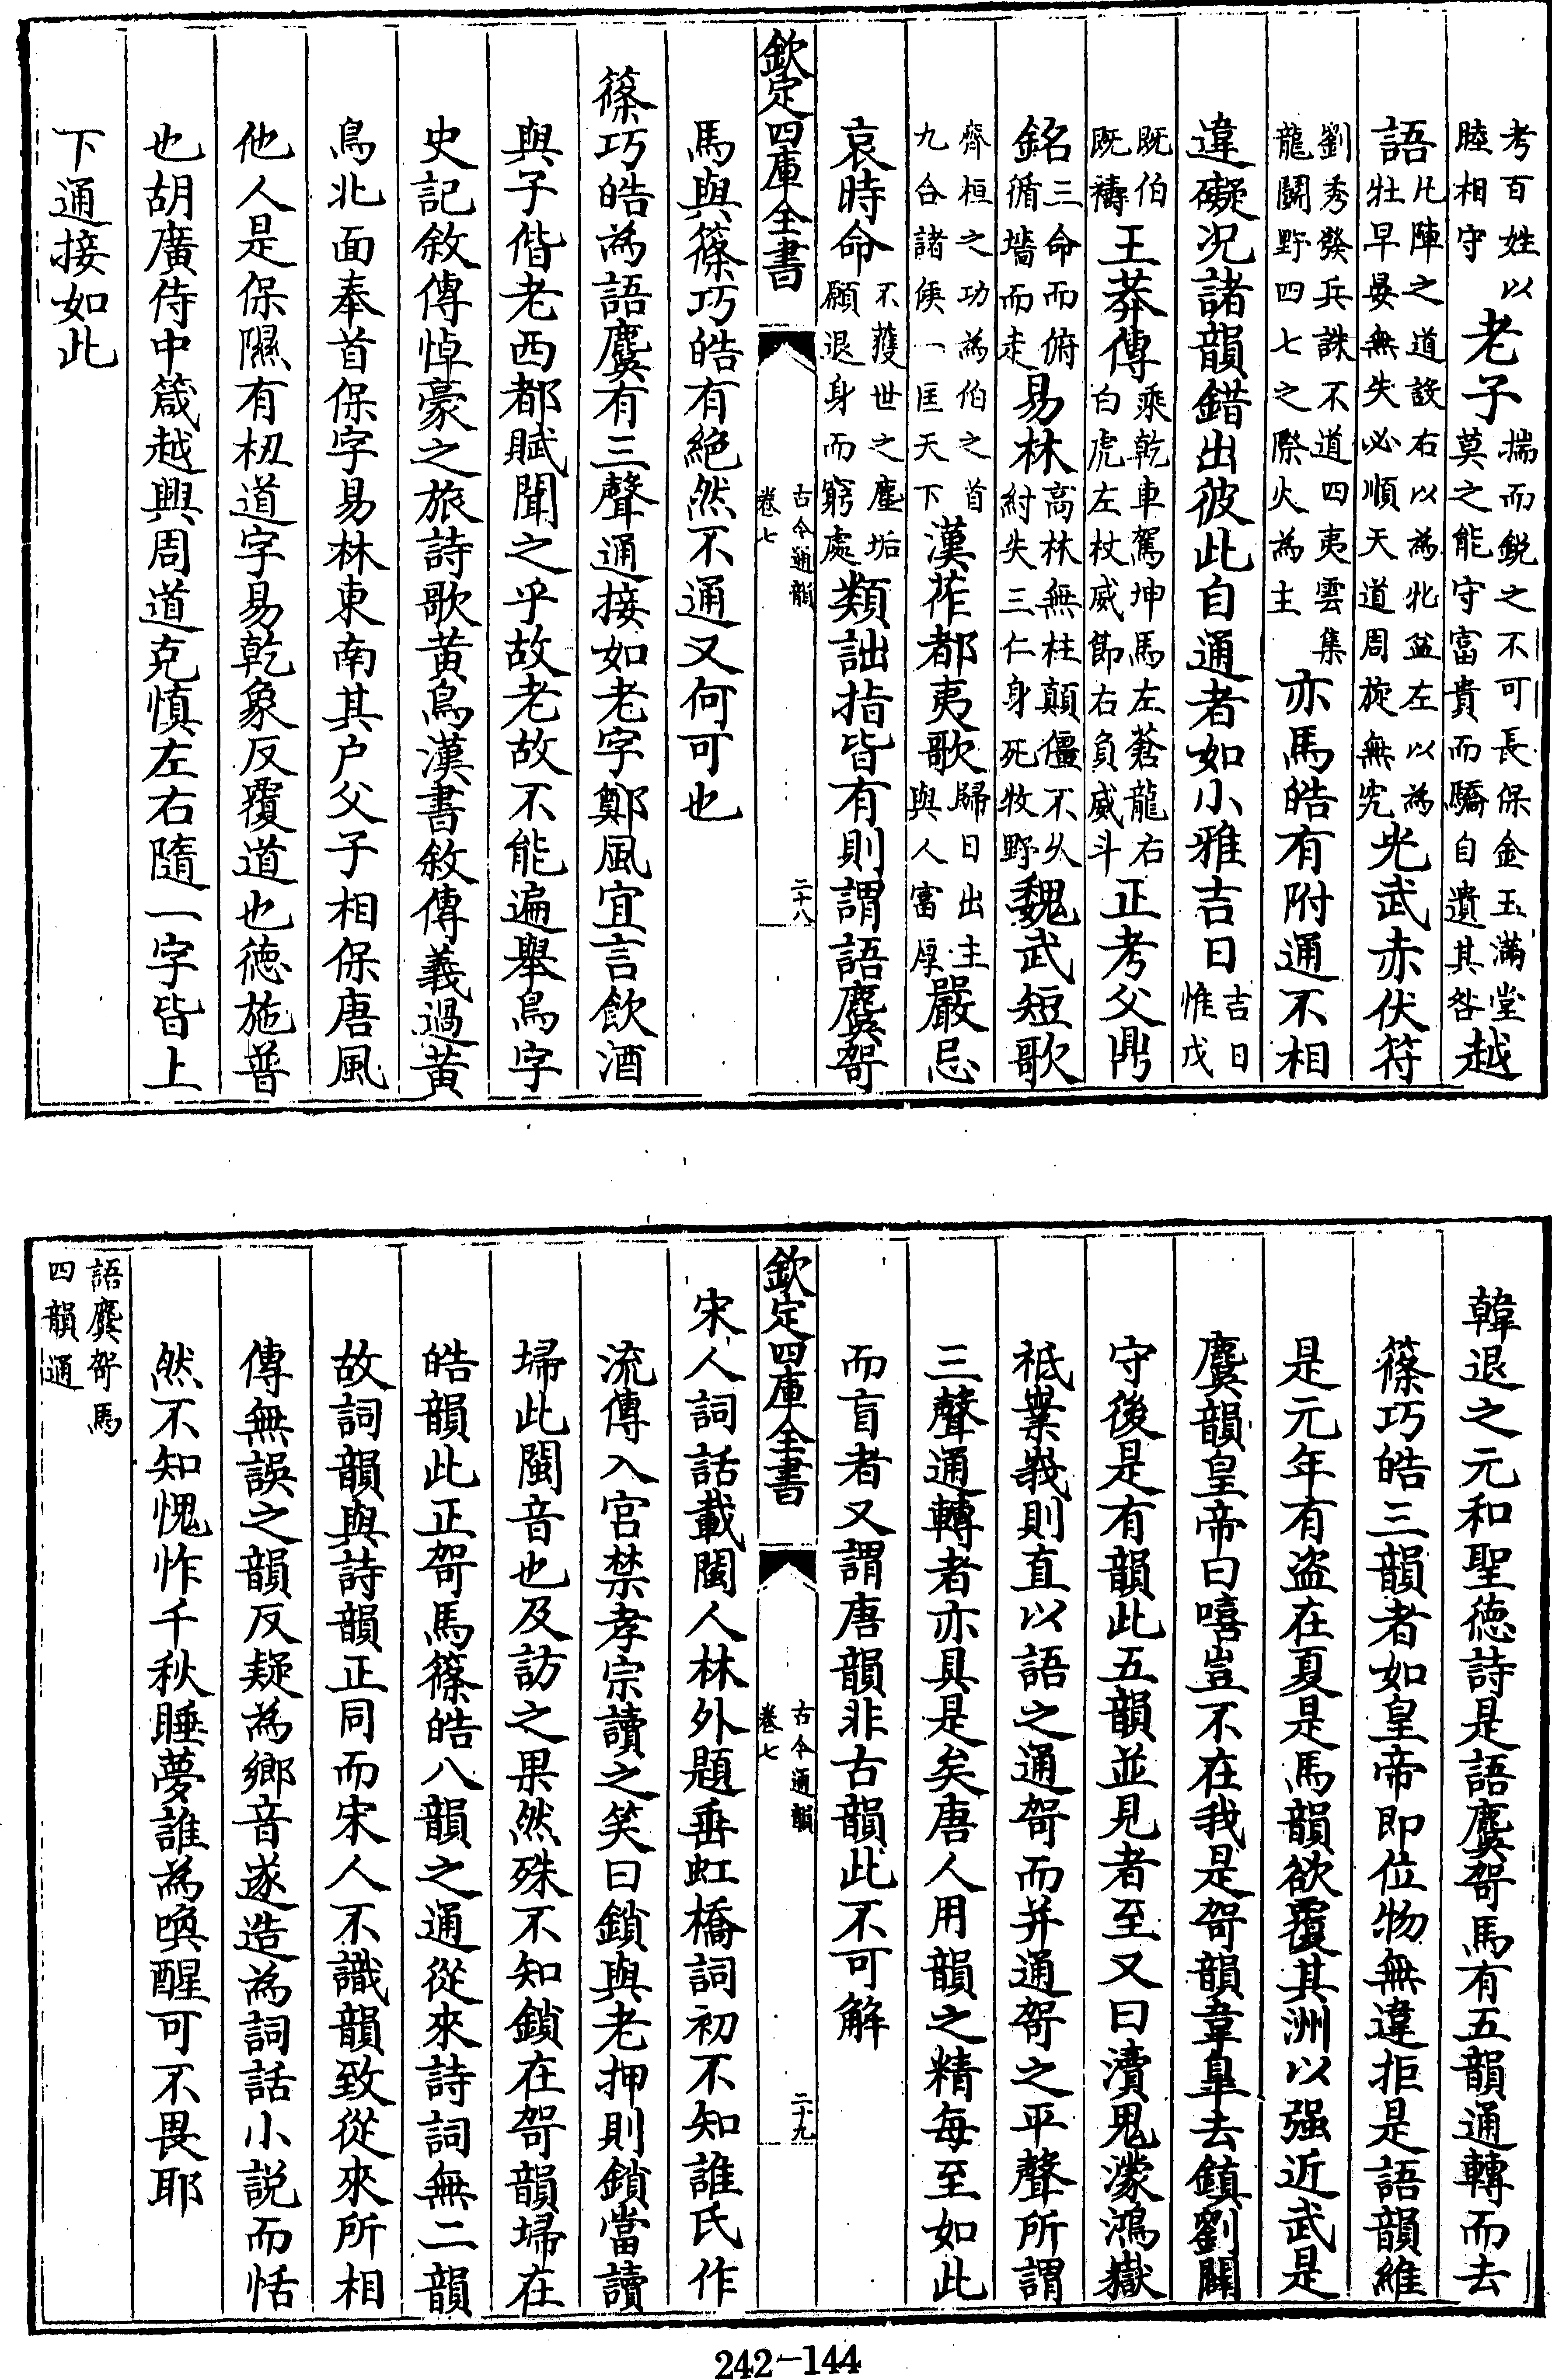 考百姓以睦相守老子揣而鋭之不可長保金玉滿堂莫之能守富貴而驕自遺其咎越
語凡陣之道設右以為牝益左以為牡早晏無失必順天道周旋無究光武赤伏符
劉秀發兵誅不道四夷雲集龍鬬野四七之際火為主亦馬皓有附通不相
違礙况諸韻錯出彼此自通者如小雅吉日吉日惟戊
既伯既禱王莽傳乘乾車駕坤馬左蒼龍右白虎左杖威節右負威斗正考父鼎
銘三命而俯循牆而走易林高林無柱顛僵不久紂失三仁身死牧野魏武短歌
齊桓之功為伯之首九合諸侯一匡天下漢莋都夷歌歸日出主與人富厚嚴忌
哀時命不獲世之塵垢願退身而窮處類詘指皆有則謂語麌哿
馬與篠巧皓有絶然不通又何可也
篠巧皓為語麌有三聲通接如老字鄭風宜言飲酒
與子偕老西都賦聞之乎故老故不能遍舉鳥字
史記敘傳悼豪之旅詩歌黄鳥漢書敘傳義過黄
鳥北面奉首保字易林東南其户父子相保唐風
他人是保隰有杻道字易乾象反覆道也德施普
也胡廣侍中箴越興周道克慎左右隨一字皆上
下通接如此
欽定四庫全書
古今通韻
卷七
二十八
韓退之元和聖德詩是語麌哿馬有五韻通轉而去
篠巧皓三韻者如皇帝即位物無違拒是語韻維
是元年有盗在夏是馬韻欲覆其洲以强近武是
麌韻皇帝曰嘻豈不在我是哿韻韋臯去鎮劉闢
守後是有韻此五韻並見者至又曰瀆鬼濛鴻嶽
祇嶪峩則直以語之通哿而并通哿之平聲所謂
三聲通轉者亦具是矣唐人用韻之精每至如此
而盲者又謂唐韻非古韻此不可解
宋人詞話載閩人林外題垂虹橋詞初不知誰氏作
流傳入宫禁孝宗讀之笑曰鎖與老押則鎖當讀
埽此閩音也及訪之果然殊不知鎖在哿韻埽在
皓韻此正哿馬篠皓八韻之通從來詩詞無二韻
故詞韻與詩韻正同而宋人不識韻致從來所相
傳無誤之韻反疑為鄉音遂造為詞話小説而恬
然不知愧怍千秋睡夢誰為喚醒可不畏耶
語麌哿馬
四韻通
欽定四庫全書
古今通韻
卷七
二十九
242-144